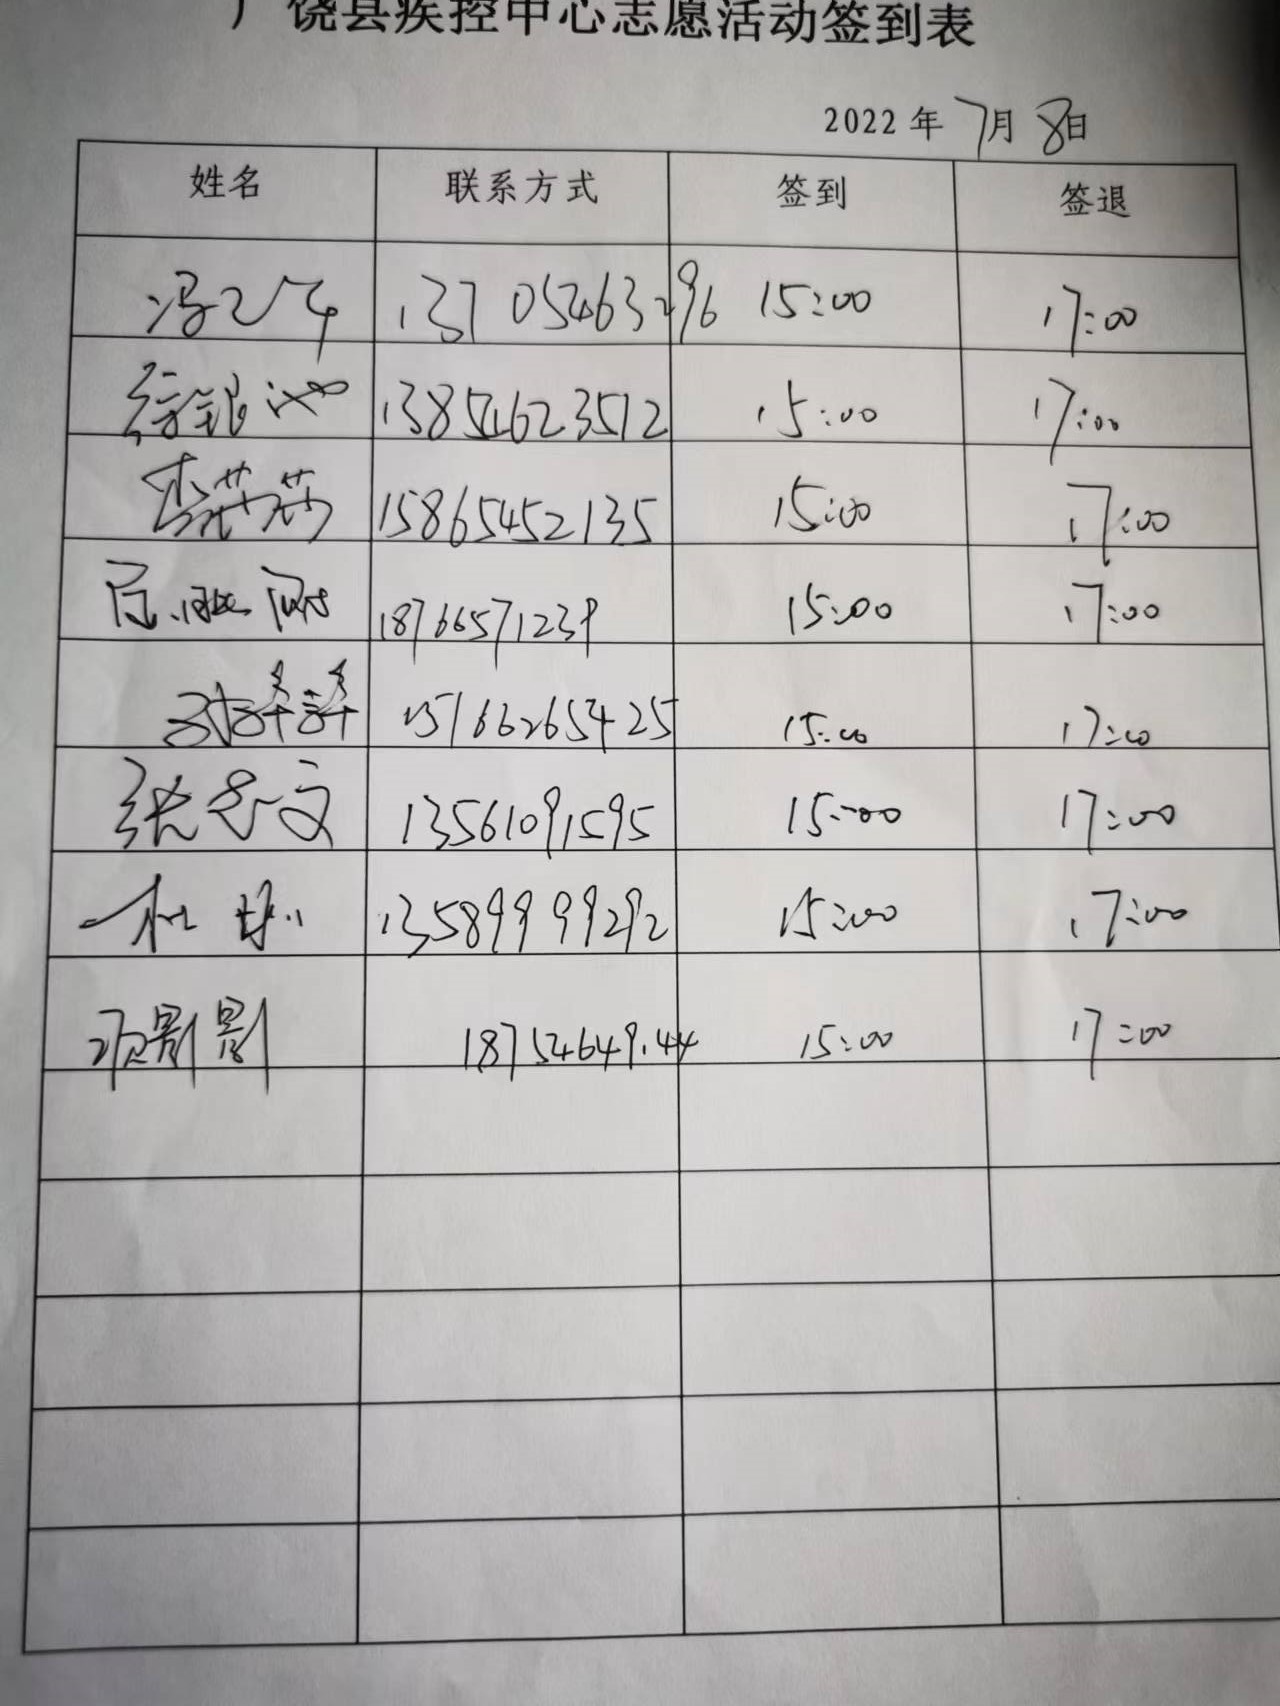 广饶县疾控中心志愿活动签到表
2022年7月8日
姓名 联系方式 签到 签退
13705463296 15:00 17:00
13854623512 15:00 17:00
李莎莎 15865452135 15:00 17:00
18766571239 15:00 17:00
15166265425 15:00 17:00
张忠文 13561091595 15:00 17:00
13589999292 15:00 17:00
项影影 18754649144 15:00 17:00